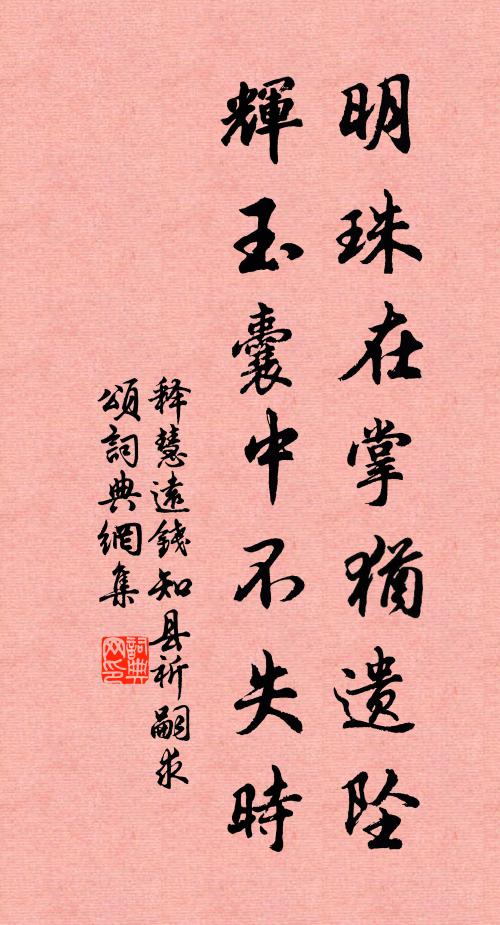 明珠在掌猶遺墜
輝玉囊中不失時
释慧遠錢知县祈嗣求
頌詞典網集
詞典
网印